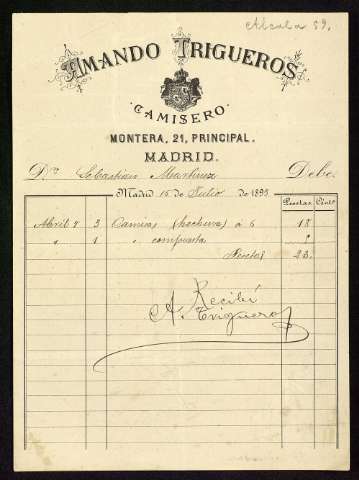 Alcala 59.
AMANDO TRIGUEROS
CAMISERO
MONTERA, 21, PRINCIPAL.
MADRID.
Dn. Sebastian Martinez Debe.
Madrid 15 de Julio de 1895
Pesetas Cénts.
Abril 3 Camisas (hechura) á 6 18
" 1 " compuesta 5
Pesetas 23
Recibí
A. Trigueros